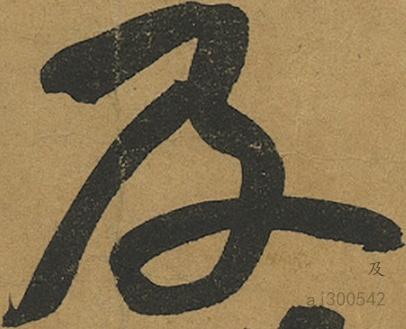 及
及
aj300542